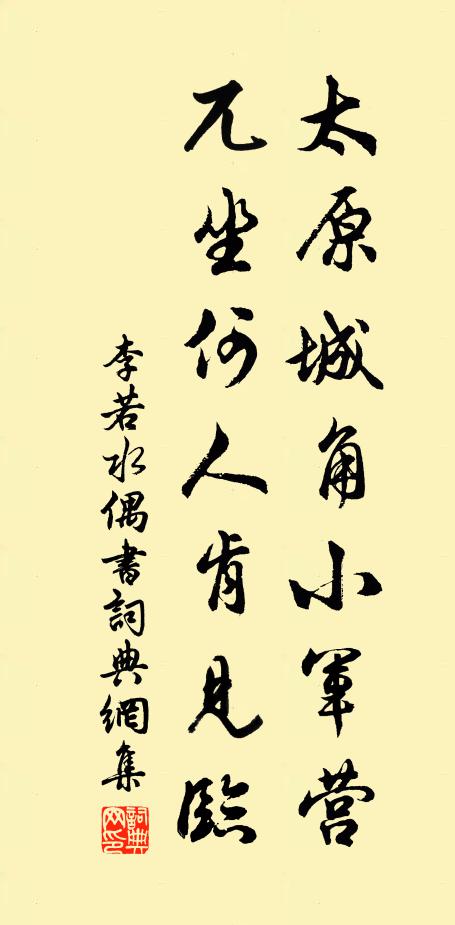 太原城角小军营
兀坐何人肯見臨
李若水偶書詞典網集
詞典網印